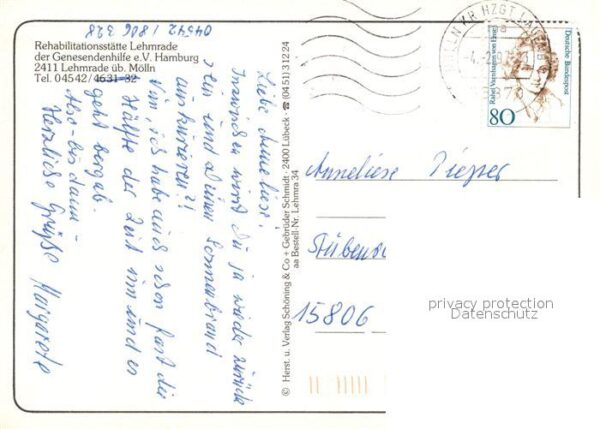 04542 / 806 328
Rehabilitationsstätte Lehmrade
der Genesendenhilfe e.V. Hamburg
2411 Lehmrade üb. Mölln
Tel. 04542/4631-32
Liebe Anneliese,
Inzwischen wirst Du ja wieder zurück
sein und Deinen Sonnenbrand
auskurieren?!
Nun, ich habe auch schon fast die
Hälfte der Zeit um und es
geht bergab.
Also - bis dann -
Herzliche Grüße Margarete
© Herst. u. Verlag Schöning & Co + Gebrüder Schmidt · 2400 Lübeck · ☎ (0451) 31224
aa Bestell-Nr. Lehmra 34
MÖLLN KR HZGT LAUENB
23879
Rahel Varnhagen von Ense
Deutsche Bundespost
80
Anneliese
15806
privacy protection
Datenschutz